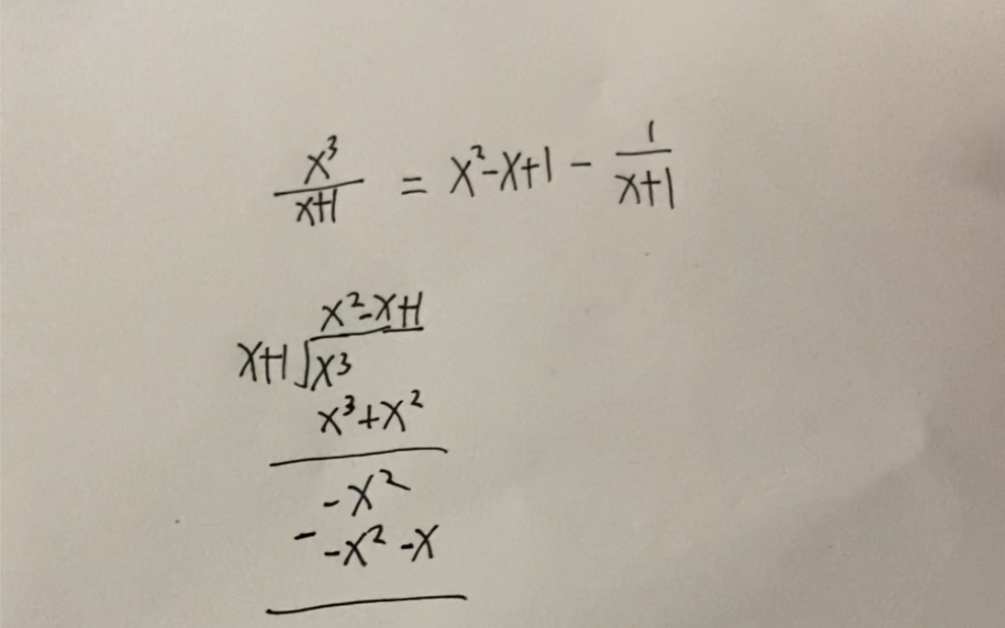 x³/x+1 = x²-x+1 - 1/x+1
x²-x+1
x+1√x³
x³+x²
-x²
- -x²-x